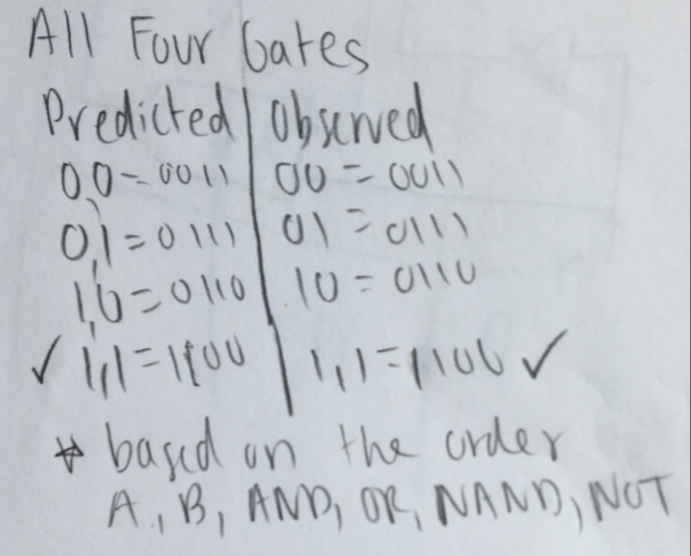 All Four Gates
Predicted | Observed
0,0 = 0011 | 00 = 0011
0,1 = 0111 | 01 = 0111
1,0 = 0110 | 10 = 0110
✓ 1,1 = 1100 | 1,1 = 1100 ✓
* based on the order
A, B, AND, OR, NAND, NOT